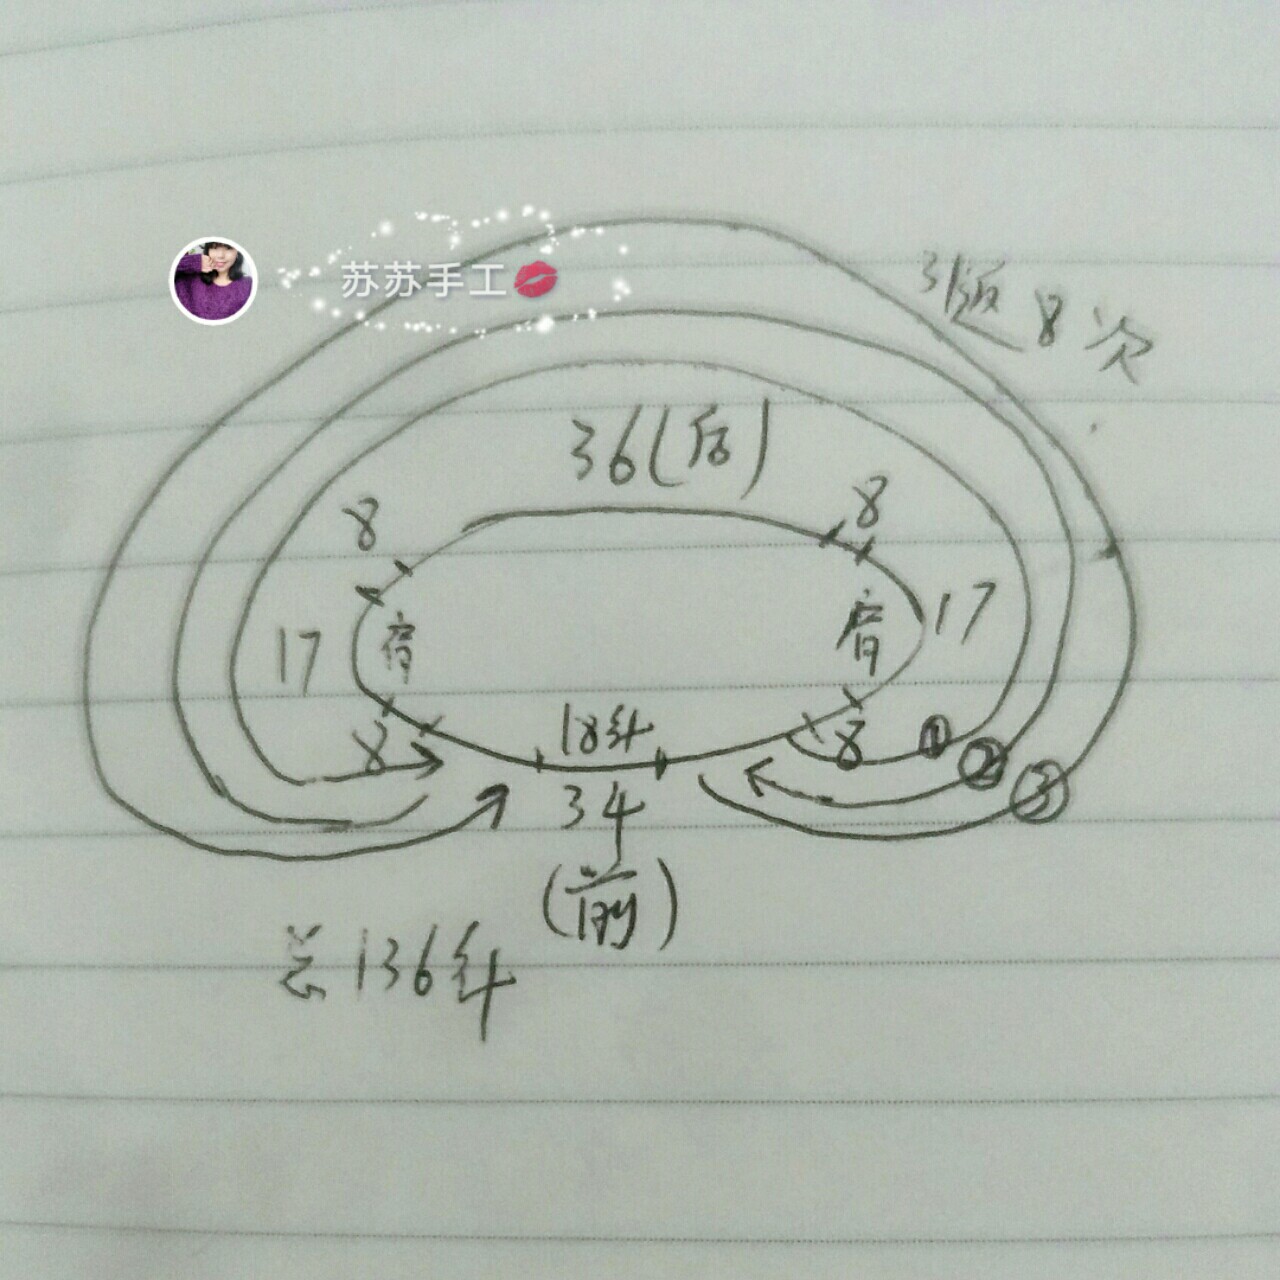 苏苏手工
引返8次
36(后)
8
8
17
肩
肩
17
8
18针
8
①
②
③
34
(前)
总136针